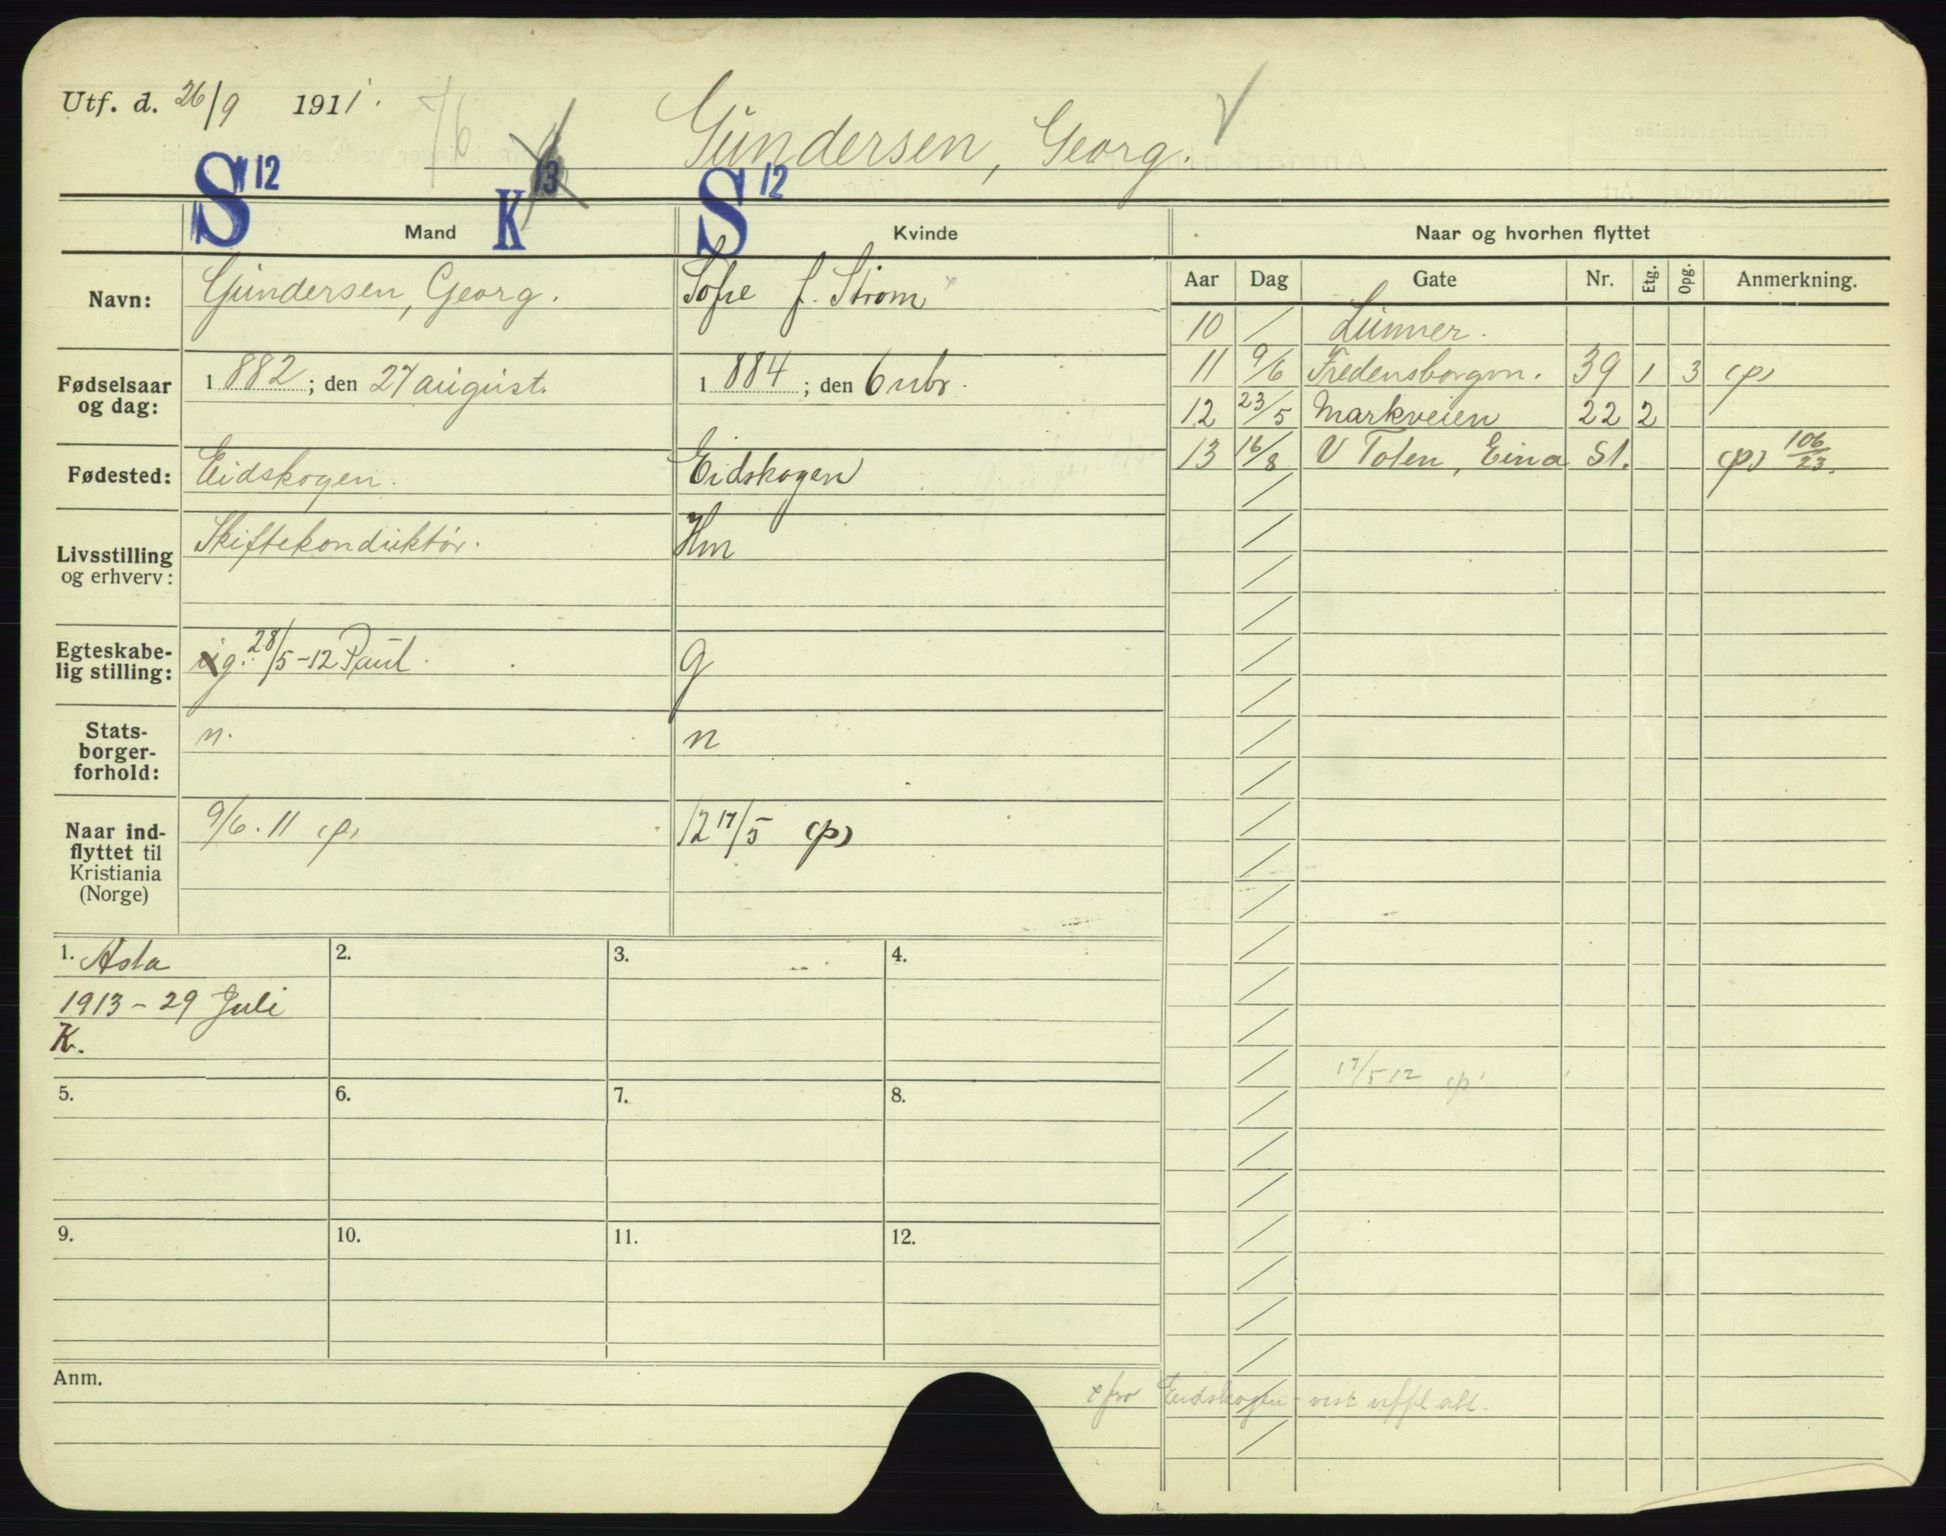 Utf. d. 26/9 1911.
Gundersen, Georg.
S 12 K 13 S 12
Mand Kvinde Naar og hvorhen flyttet
Navn: Gundersen, Georg. Sofie f. Strøm
Aar Dag Gate Nr. Etg. Opg. Anmerkning.
10 / Lunner.
Fødselsaar og dag: 1882; den 27 august. 1884; den 6 nbr.
11 9/6 Fredensborgvn. 39 1 3 (p)
12 23/5 Markveien 22 2
13 16/8 V Toten, Eina St. (p) 106/23.
Fødested: Eidskogen. Eidskogen
Livsstilling og erhverv: Skiftekonduktør. Hm
Egteskabelig stilling: g. 28/5-12 Paul. g
Statsborgerforhold: n. n
Naar indflyttet til Kristiania (Norge) 9/6.11 (p) 12 17/5 (p)
1. Asta 2. 3. 4.
1913 - 29 Juli
K.
17/5 12 (p)
5. 6. 7. 8.
9. 10. 11. 12.
Anm.
x fra Eidskogen - vist